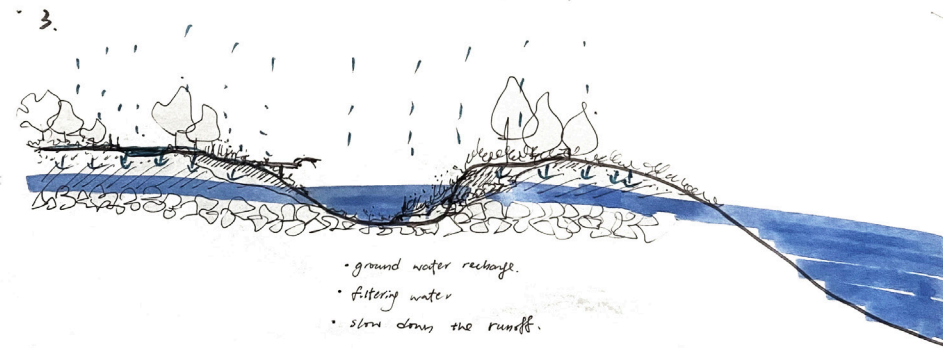 3.
• ground water recharge.
• filtering water
• slow down the runoff.